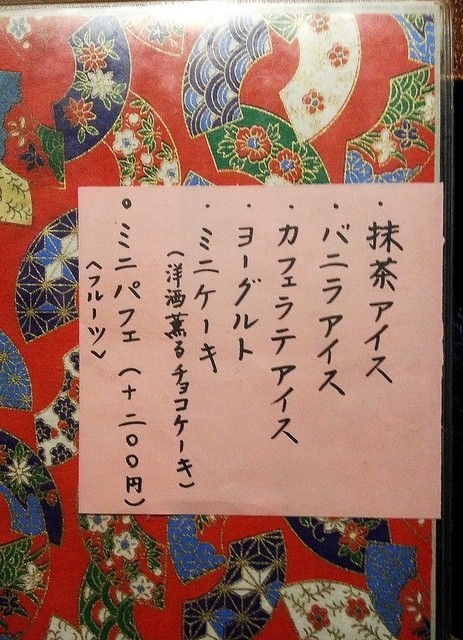 ・抹茶アイス
・バニラアイス
・カフェラテアイス
・ヨーグルト
・ミニケーキ
(洋酒薫るチョコケーキ)
・ミニパフェ(+二〇〇円)
〈フルーツ〉